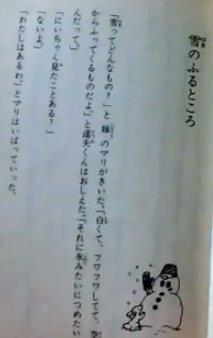 雪のふるところ
「雪ってどんなもの？」と妹のマリがきいた。「白くて、フワフワしてて、空
からふってくるものだよ。」と達夫くんはおしえた。「それに氷みたいにつめたい
んだって。」
「にいちゃん見たことある？」
「ないよ。」
「わたしはあるわ。」とマリはいばっていった。